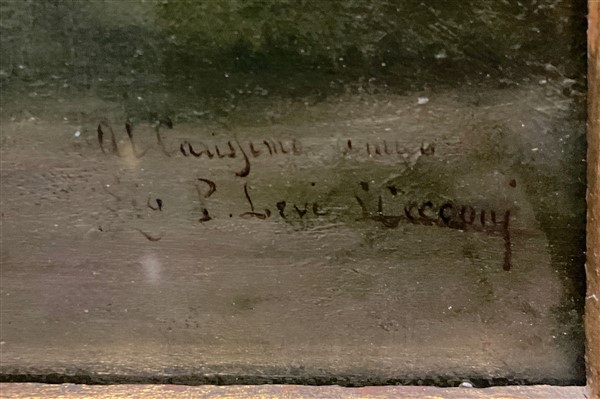 Al Carissimo amico
Sig P. Levi Cecconj